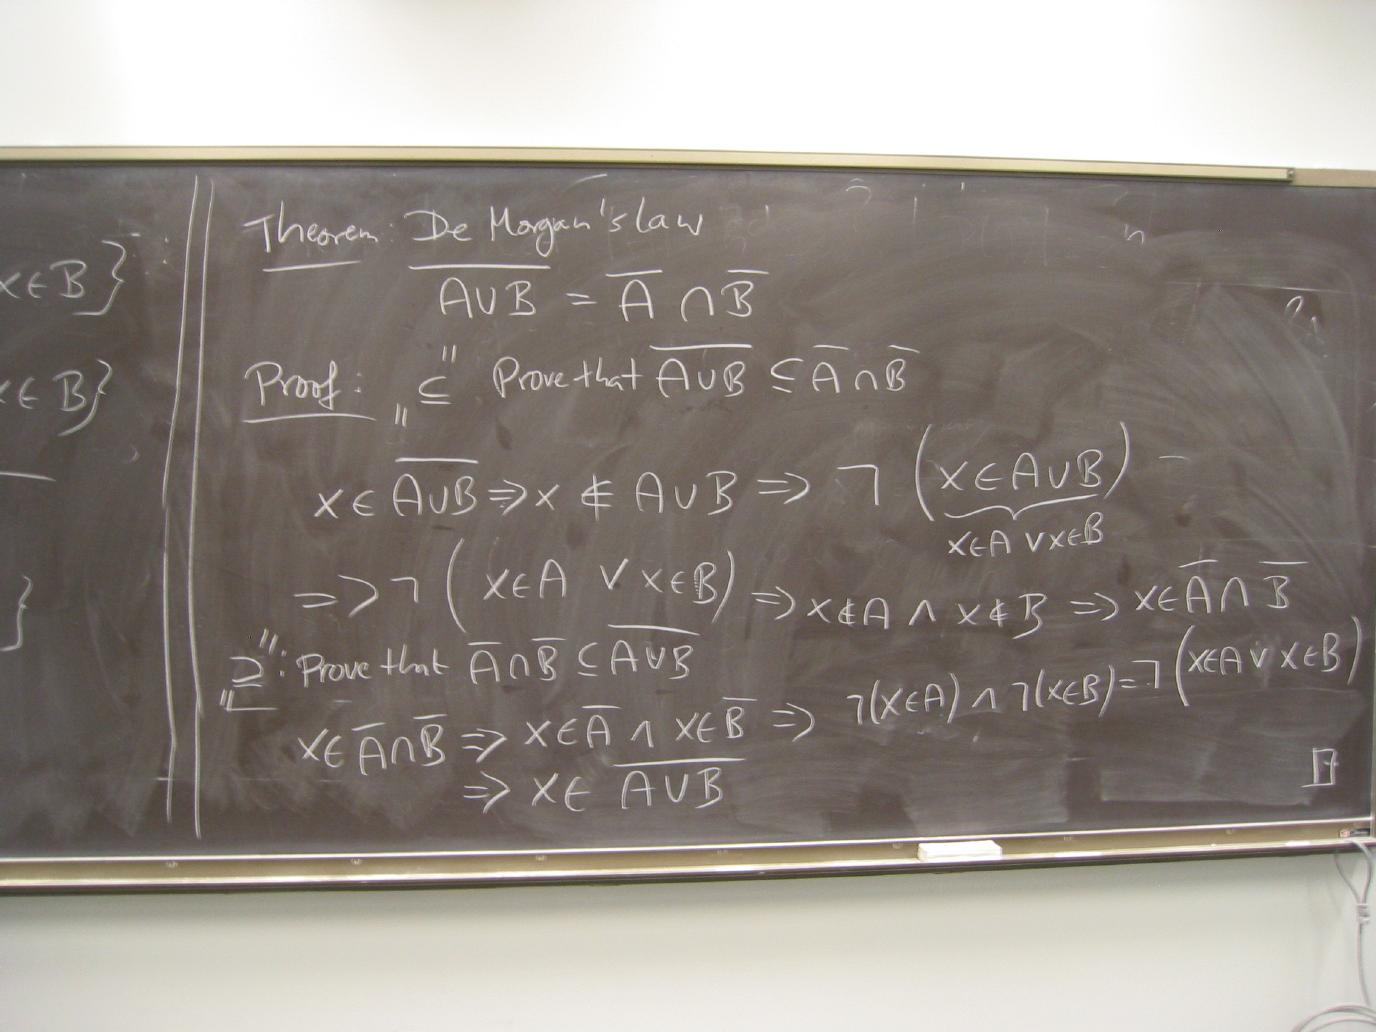 x∈B}
x∈B}
}
Theorem: De Morgan's law
\overline{A∪B} = \overline{A} ∩ \overline{B}
Proof: "⊆" Prove that \overline{A∪B} ⊆ \overline{A} ∩ \overline{B}
x ∈ \overline{A∪B} ⇒ x ∉ A∪B ⇒ ¬ (x∈A∪B)
x∈A ∨ x∈B
⇒ ¬ (x∈A ∨ x∈B) ⇒ x∉A ∧ x∉B ⇒ x∈\overline{A} ∩ \overline{B}
"⊇": Prove that \overline{A}∩\overline{B} ⊆ \overline{A∪B}
x∈\overline{A}∩\overline{B} ⇒ x∈\overline{A} ∧ x∈\overline{B} ⇒ ¬(x∈A) ∧ ¬(x∈B) = ¬(x∈A ∨ x∈B)
⇒ x∈ \overline{A∪B}